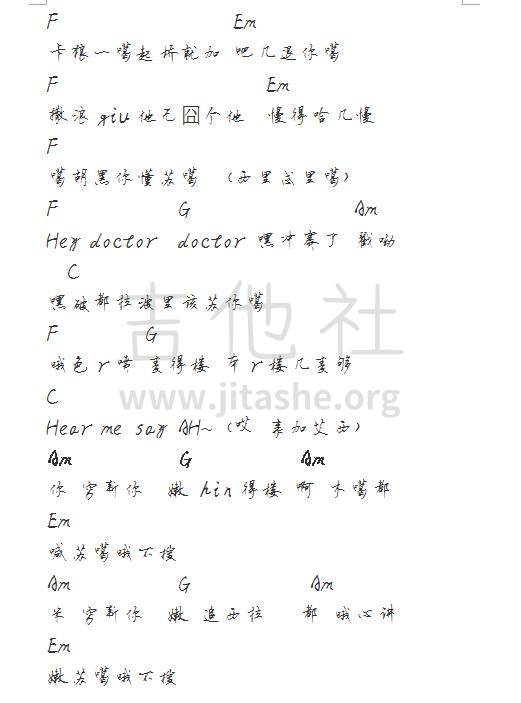 F Em
卡狼一噶起挤就加 吧几退你噶
F Em
撒浪 giu 他乞囧个他 慢得哈几慢
F
噶胡黑你懂苏噶 (西里 里噶)
F G Am
Hey doctor doctor 嘿冲赛了 戳呦
C
嘿破都拉波里该苏你噶
F G
哦色 r 唔 麦得楼 车 r 楼几麦够
C
Hear me say AH~ (哎 素加艾西)
Am G Am
你 穷新你 嫩 hin 得楼 啊 木噶都
Em
喊苏噶哦不搜
Am G Am
米 穷新你 嫩 追西拉 都 哦心讲
Em
嫩苏噶哦不搜
吉他社
www.jitashe.org